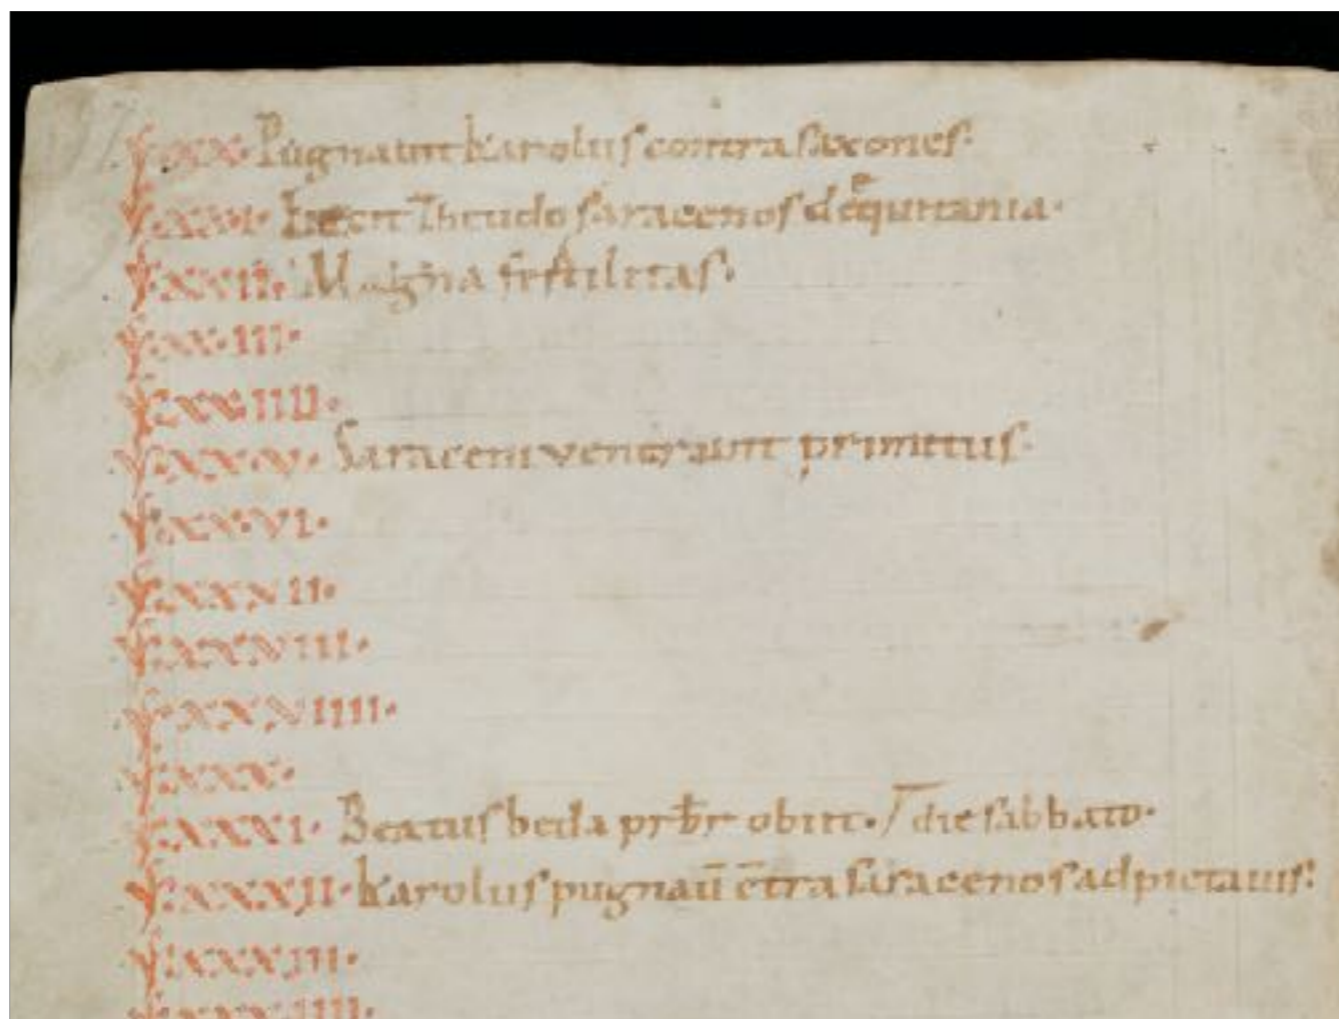 ·XX· Pugnauit karolus contra saxones·
·XXI· Eiecit Theudo saracenos de equitania·
·XXII· Magna fertilitas·
·XX·III·
·XX·IIII·
·XX·V· Saraceni venerunt primitus·
·XX·VI·
·XXVII·
·XXVIII·
·XXVIIII·
·XXX·
·XXXI· Beatus beda prƀr obiit· die sabbato·
·XXXII· karolus pugnaū c̄tra saracenos ad pictauis:
·XXXIII·
·XXXIIII·